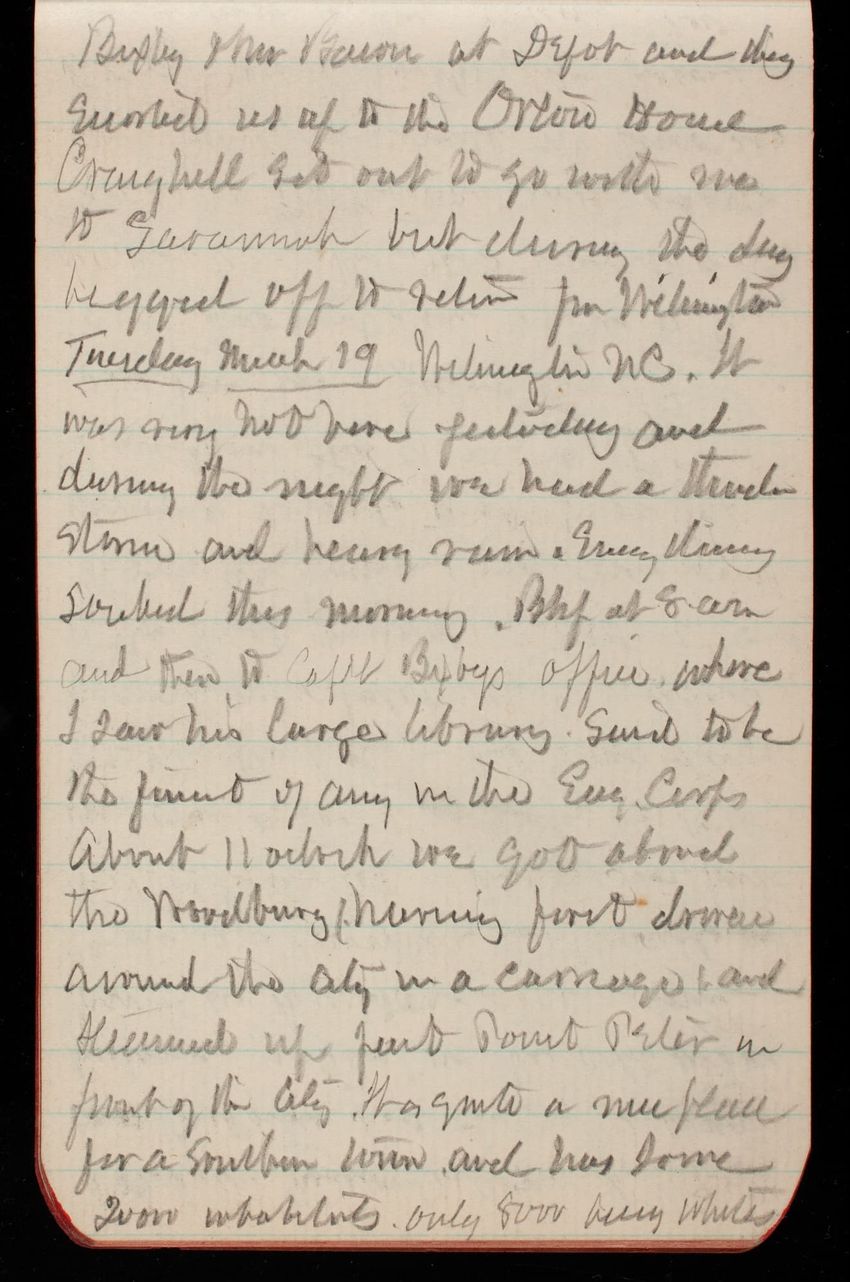 Bixby & Mr Bacon at Depot and they
Escorted us up to the Orton House
Craighill set out to go with me
to Savannah but during the day
begged off to return from Wilmington
Tuesday March 19 Wilmington NC. It
was very hot here yesterday and
during the night we had a thunder
storm and heavy rain. Everything
soaked this morning. Bkf at 8 am
and then to Capt Bixbys office where
I saw his large library. Said to be
the finest of any in the Eng. Corps
About 11 oclock we got aboard
the Woodbury (Having first driven
around the city in a carriage) and
steamed up past Point Peter in
front of the city. It is quite a nice place
for a Southern town and has some
20000 inhabitants. only 8000 being whites